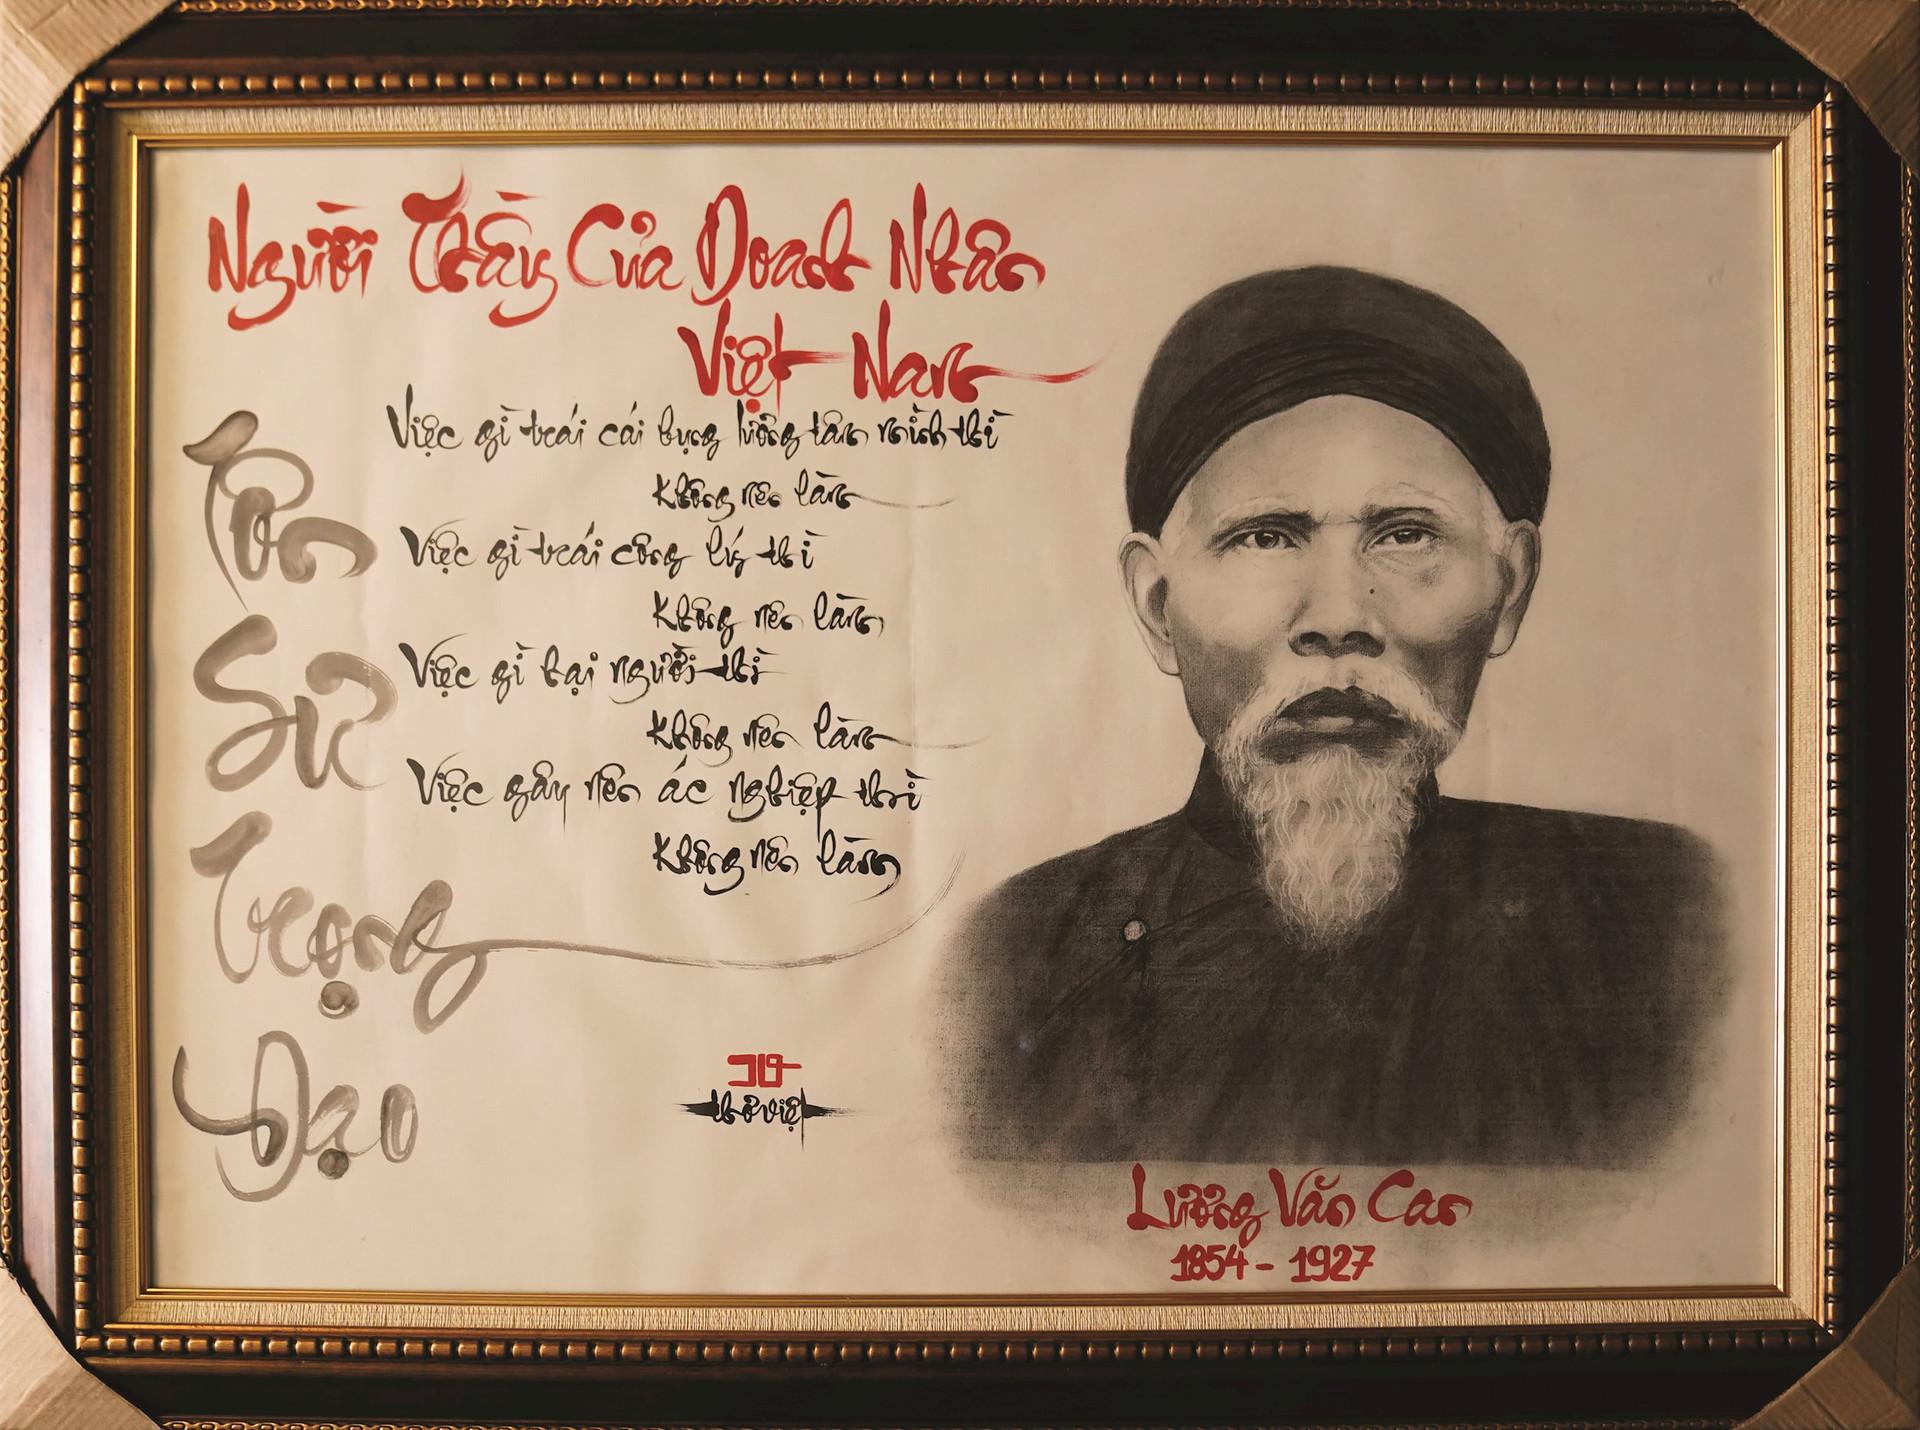 Người Thầy Của Doanh Nhân
Việt Nam
Việc gì trái cái bụng lương tâm mình thì
Không nên làm
Việc gì trái công lý thì
Không nên làm
Việc gì hại người thì
Không nên làm
Việc gây nên ác nghiệp thì
Không nên làm
Tôn
Sư
Trọng
Đạo
thơ việt
Lương Văn Can
1854 - 1927